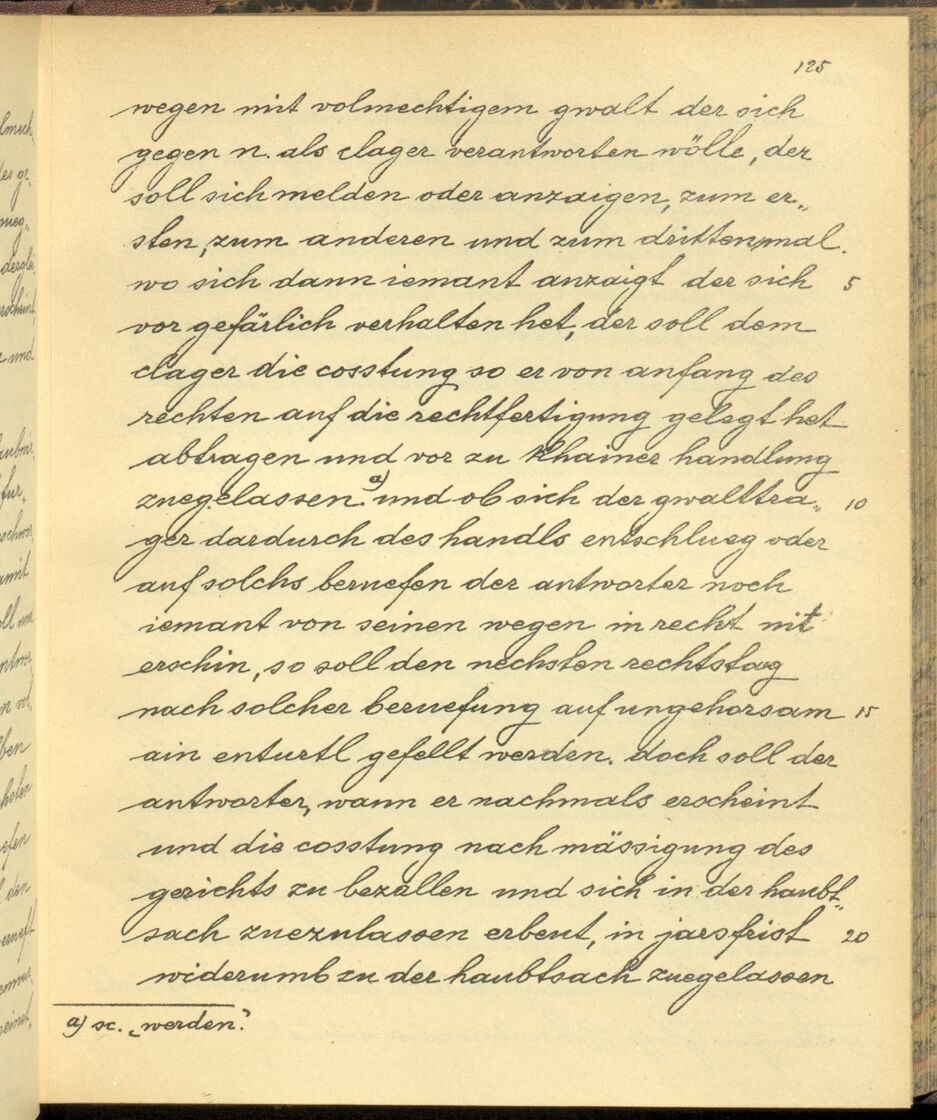 125
wegen mit volmechtigem gwalt der sich
gegen n. als clager verantworten wölle, der
soll sich melden oder anzaigen, zum er„
sten, zum anderen und zum drittenmal.
wo sich dann iemant anzaigt der sich 5
vor gefärlich verhalten het, der soll dem
clager die cosstung so er von anfang des
rechten auf die rechtfertigung gelegt het
abtragen und vor zu khainer handlung
zuegelassen.a) und ob sich der gwalttra„ 10
ger dardurch des handls entschlueg oder
auf solchs beruefen der antworter noch
iemant von seinen wegen in recht nit
erschin, so soll den nechsten rechtstag
nach solcher beruefung auf ungehorsam 15
ain enturtl gefellt werden. doch soll der
antworter, wann er nachmals erscheint
und die cosstung nach mässigung des
gerichts zu bezallen und sich in der haubt„
sach zuezulassen erbeut, in jarsfrist 20
widerumb zu der haubtsach zuegelassen
a) sc. „werden".